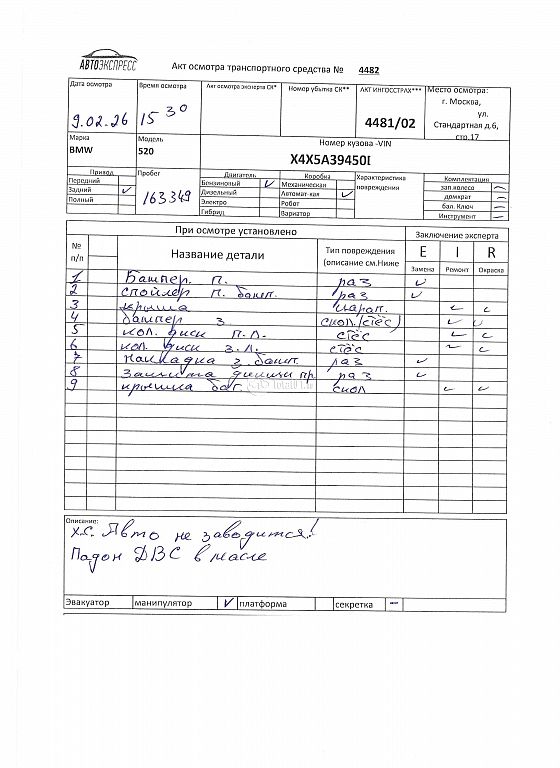 АВТОЭКСПРЕСС
Акт осмотра транспортного средства № 4482
Дата осмотра Время осмотра Акт осмотра эксперта СК* Номер убытка СК** АКТ ИНГОССТРАХ*** Место осмотра:
9.02.26 15 30 4481/02 г. Москва,
ул.
Стандартная д.6,
стр.17
Марка Модель Номер кузова -VIN
BMW 520 X4X5A39450I
Привод Пробег Двигатель Коробка Характеристика повреждения Комплектация
Передний Бензиновый Механическая зап.колесо
Задний 163349 Дизельный Автомат-кая домкрат
Полный Электро Робот бал. Ключ
Гибрид Вариатор Инструмент
При осмотре установлено Заключение эксперта
№ п/п Название детали Тип повреждения (описание см.Ниже E I R
Замена Ремонт Окраска
1 Бампер. П. раз
2 спойлер П. бамп. раз
3 крыша царап.
4 бампер З скол.(стёс)
5 кол. диск П.Л. стёс
6 кол. диск З.Л. стёс
7 Накладка З. бамп. раз
8 Защита днища пр. раз
9 крышка баг. скол
Описание:
х.с. Авто не заводится!
Падон ДВС в масле
Эвакуатор манипулятор платформа секретка